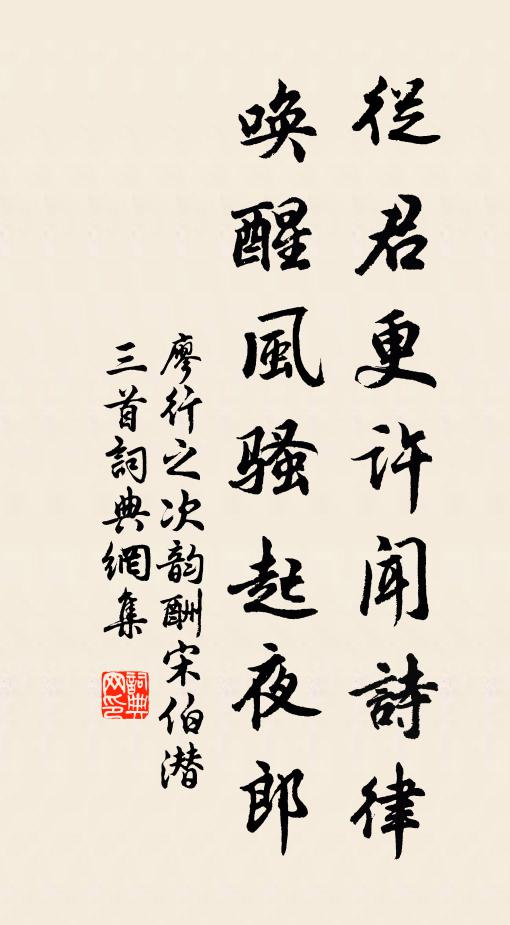 從君更许闻詩律
唤醒風骚起夜郎
廖行之次韵酬宋伯潜
三首詞典網集
詞典
网印